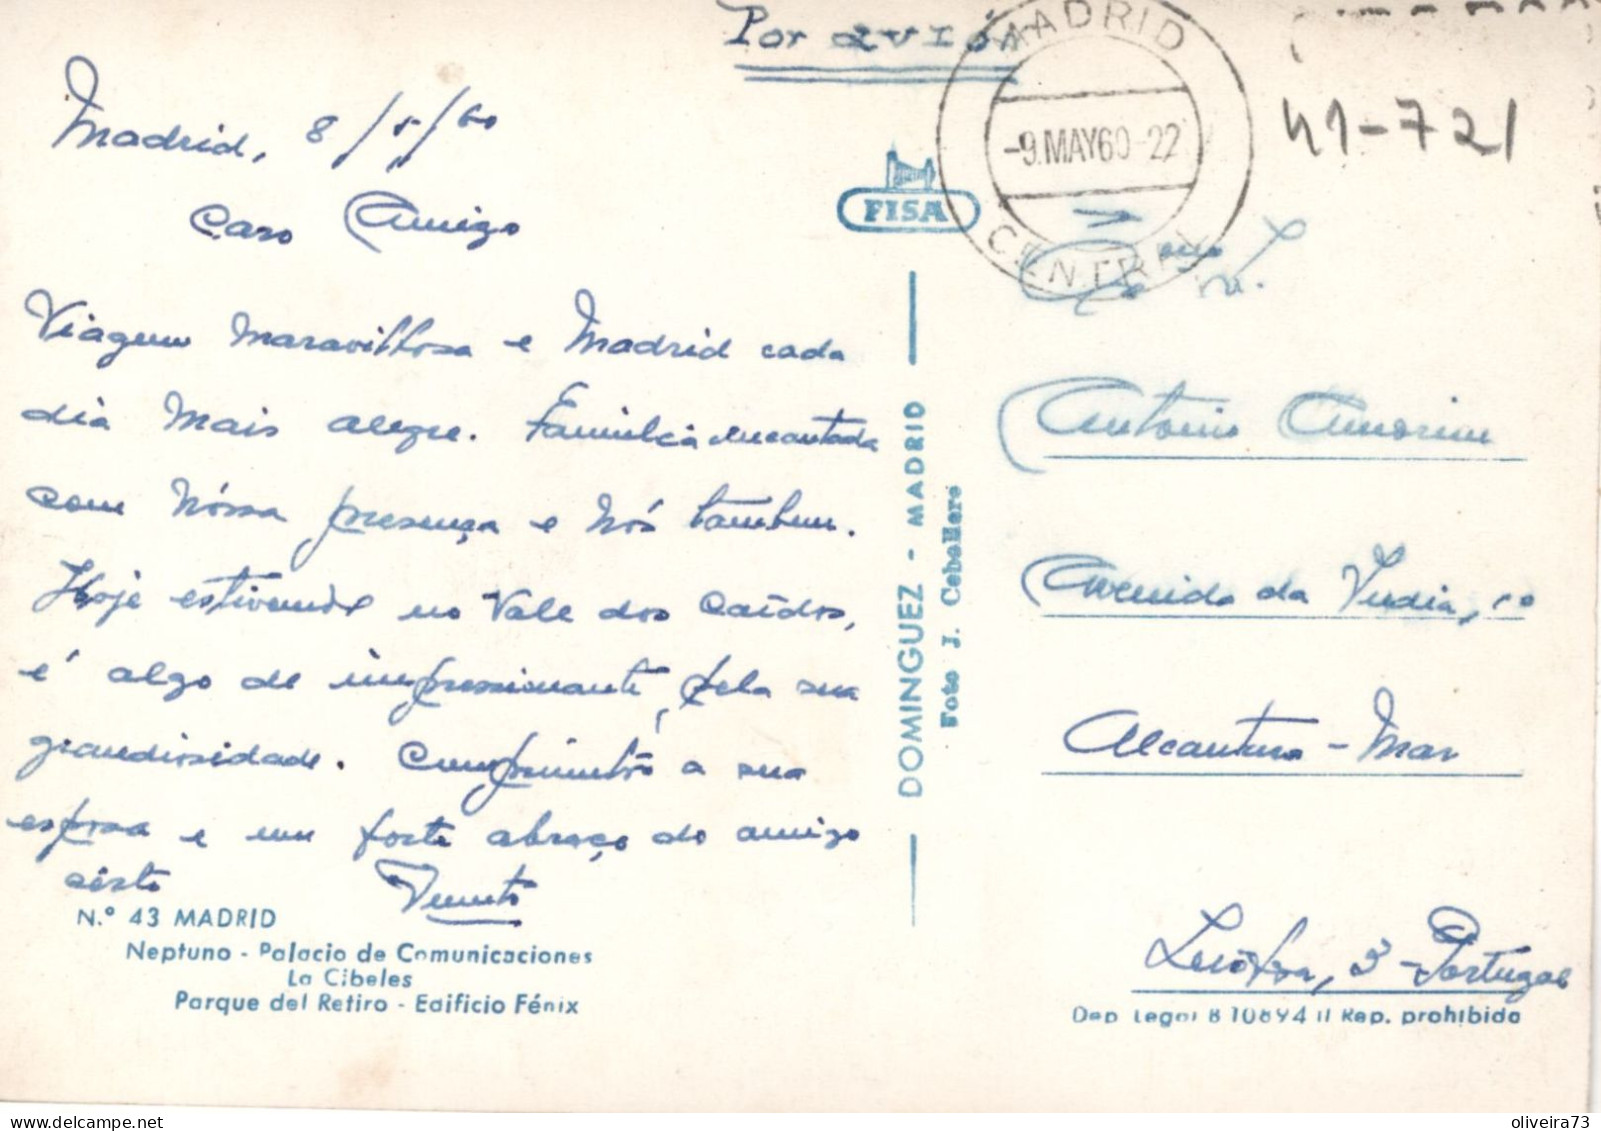 Por avión
MADRID
-9.MAY60-22
CENTRAL
41-721
Madrid, 8/5/60
Caro Amigo
Viagem maravilhosa e Madrid cada
dia mais alegre. Familia encantada
com nóssa presença e nós tambem.
Hoje estivemos no Vale dos Caídos,
é algo de impressionante, pela sua
grandiosidade. Cumprimentos a sua
esposa e um forte abraço do amigo
certo
FISA
DOMINGUEZ - MADRID
Foto J. Cebollero
Antonio Amorim
Avenida da India, 10
Alcantara - Mar
Lisboa, 3 - Portugal
N.° 43 MADRID
Neptuno - Palacio de Comunicaciones
La Cibeles
Parque del Retiro - Edificio Fénix
Dep Legal B 10894 II Rep. prohibida
oliveira73